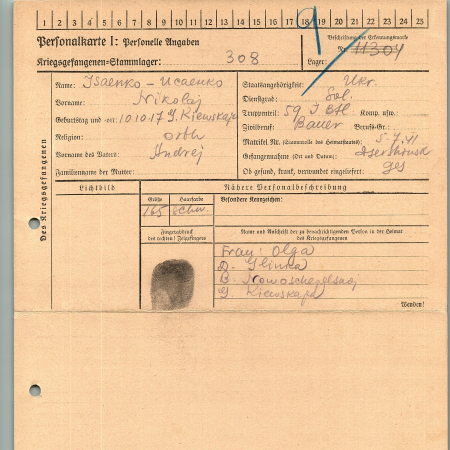 1 2 3 4 5 6 7 8 9 10 11 12 13 14 15 16 17 18 19 20 21 22 23 24 25
9
Personalkarte I: Personelle Angaben
Beschriftung der Erkennungsmarke
Nr. 11304
Kriegsgefangenen-Stammlager: 308
Lager:
Des Kriegsgefangenen
Name: Isaenko – Исаенко
Vorname: Nikolaj
Geburtstag und -ort: 10.10.17 G. Kiewskaja
Religion: orth
Vorname des Vaters: Andrej
Familienname der Mutter:
Staatsangehörigkeit: Ukr.
Dienstgrad: Sol.
Truppenteil: 59 J. Btl. Komp. usw.:
Zivilberuf: Bauer Berufs-Gr.:
Matrikel Nr. (Stammrolle des Heimatstaates):
Gefangennahme (Ort und Datum): 5.7.VI
Ob gesund, krank, verwundet eingeliefert: ges
Lichtbild
Nähere Personalbeschreibung
Größe Haarfarbe
165 schw.
Besondere Kennzeichen:
Fingerabdruck
des rechten! Zeigefingers
Name und Anschrift der zu benachrichtigenden Person in der Heimat
des Kriegsgefangenen
Frau: Olga
D. Ilinka
B. 
G. Kiewskaja
Wenden!